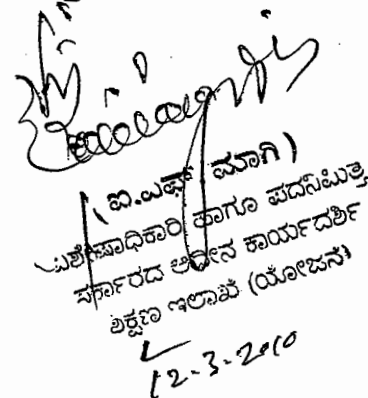 (ಐ.ಎಫ್ ಮಾಗಿ)
ವಿಶೇಷಾಧಿಕಾರಿ ಹಾಗೂ ಪದನಿಮಿತ್ತ
ಸರ್ಕಾರದ ಅಧೀನ ಕಾರ್ಯದರ್ಶಿ
ಶಿಕ್ಷಣ ಇಲಾಖೆ (ಯೋಜನೆ)
12-3-2010